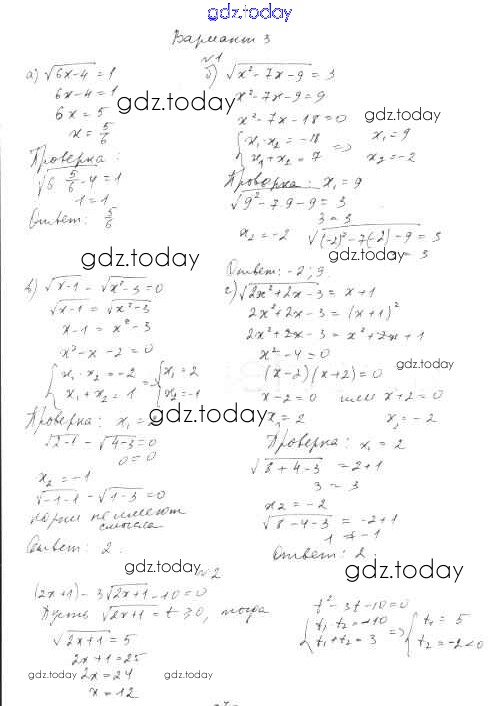 gdz.today
Вариант 3
№1
а) √6x-4 = 1
6x-4=1
6x=5
x=5/6
Проверка:
√6 5/6 -4 = 1
1=1
Ответ: 5/6
б) √x²-7x-9 = 3
x²-7x-9=9
x²-7x-18=0
{x₁·x₂=-18
x₁+x₂=7 => x₁=9
x₂=-2
Проверка: x₁=9
√9²-7·9-9 = 3
3=3
x₂=-2 √(-2)²-7(-2)-9 = 3
3
Ответ: -2; 9.
gdz.today
gdz.today
gdz.today
gdz.today
в) √x-1 - √x²-3 = 0
√x-1 = √x²-3
x-1=x²-3
x²-x-2=0
{x₁·x₂=-2
x₁+x₂=1 => {x₁=2
x₂=-1
Проверка: x₁=2
√2-1 - √4-3 = 0
0=0
x₂=-1
√-1-1 - √1-3 = 0
корни не имеют
смысла
Ответ: 2.
г) √2x²+2x-3 = x+1
2x²+2x-3=(x+1)²
2x²+2x-3=x²+2x+1
x²-4=0
(x-2)(x+2)=0
x-2=0 или x+2=0
x₁=2 x₂=-2
Проверка: x₁=2
√8+4-3 = 2+1
3=3
x₂=-2
√8-4-3 = -2+1
1≠-1
Ответ: 2
gdz.today
gdz.today
gdz.today
№2
(2x+1)-3√2x+1-10=0
Пусть √2x+1=t≥0, тогда
t²-3t-10=0
{t₁·t₂=-10
t₁+t₂=3 => {t₁=5
t₂=-2<0
√2x+1=5
2x+1=25
2x=24
x=12
gdz.today
gdz.today
gdz.today
gdz.today